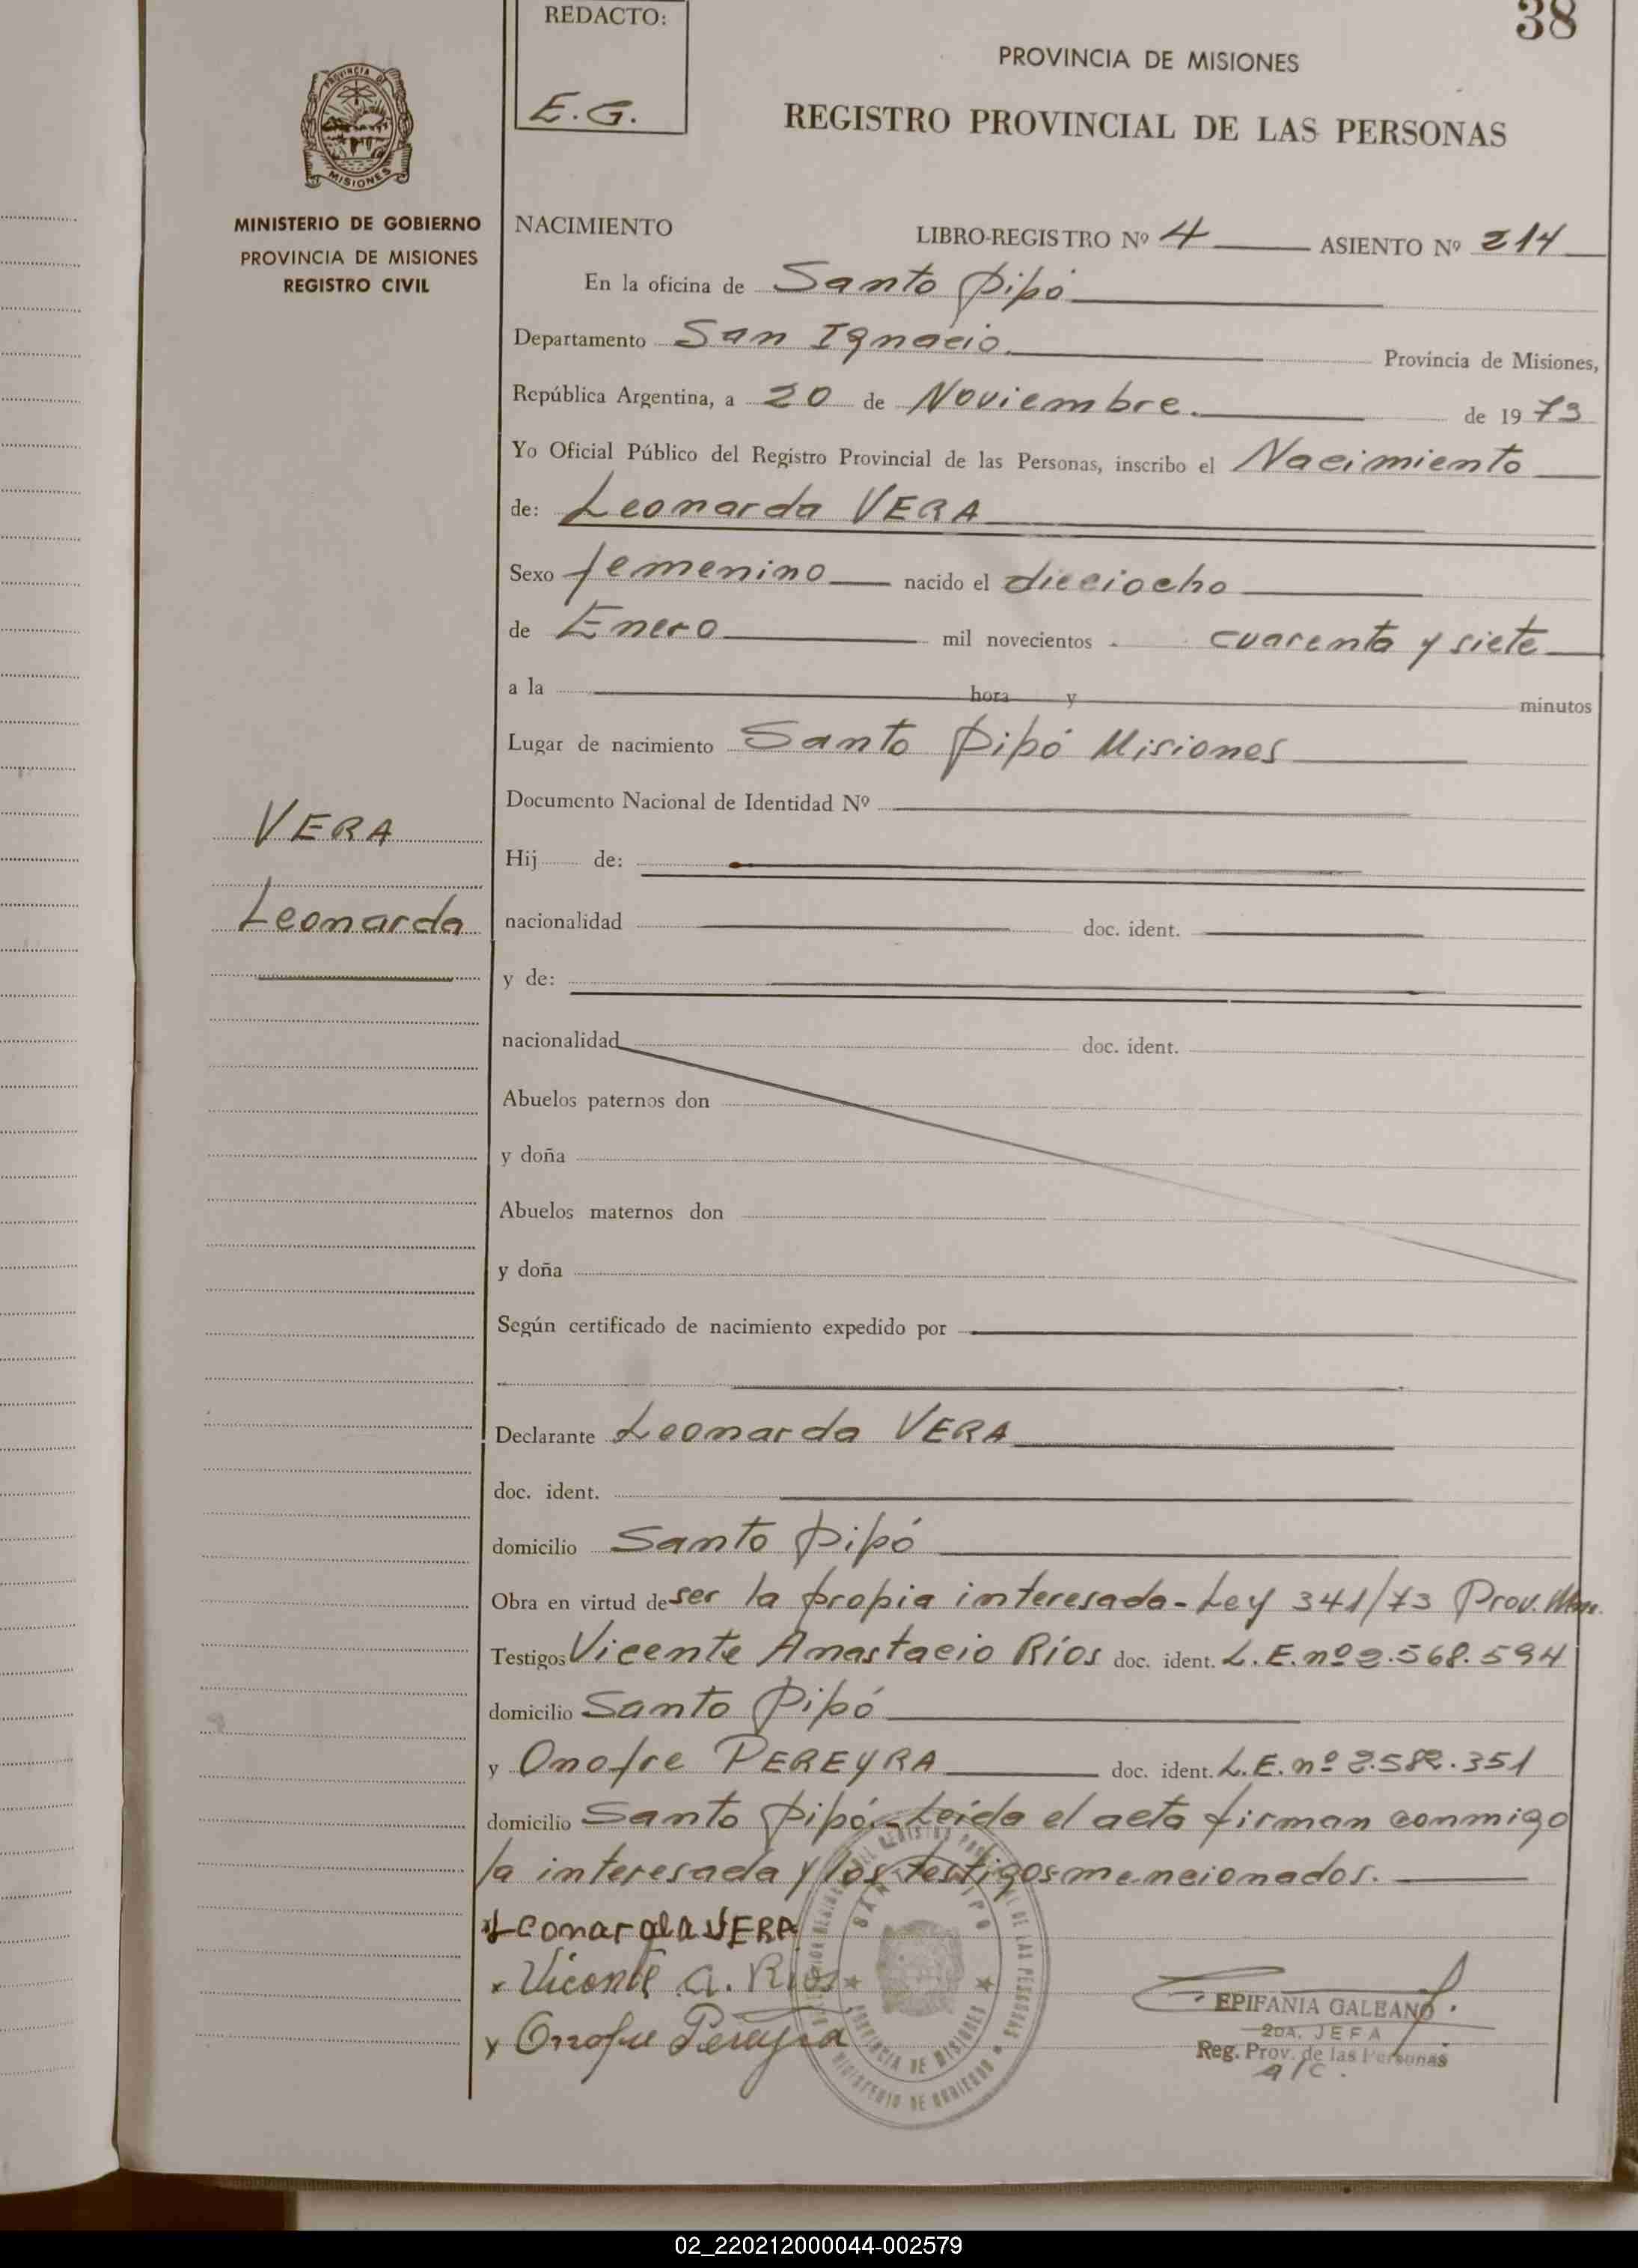 38
REDACTO:
E.G.
PROVINCIA DE MISIONES
REGISTRO PROVINCIAL DE LAS PERSONAS
PROVINCIA DE
MISIONES
MINISTERIO DE GOBIERNO
PROVINCIA DE MISIONES
REGISTRO CIVIL
NACIMIENTO LIBRO-REGISTRO Nº 4 ASIENTO Nº 214
En la oficina de Santo Pipó
Departamento San Ignacio. Provincia de Misiones,
República Argentina, a 20 de Noviembre. de 1973
Yo Oficial Público del Registro Provincial de las Personas, inscribo el Nacimiento
de: Leonarda VERA
Sexo femenino nacido el dieciocho
de Enero mil novecientos cuarenta y siete
a la hora y minutos
Lugar de nacimiento Santo Pipó Misiones
Documento Nacional de Identidad Nº
VERA
Leonarda
Hij de:
nacionalidad doc. ident.
y de:
nacionalidad doc. ident.
Abuelos paternos don
y doña
Abuelos maternos don
y doña
Según certificado de nacimiento expedido por
Declarante Leonarda VERA
doc. ident.
domicilio Santo Pipó
Obra en virtud de ser la propia interesada - Ley 341/73 Prov. Mnes.
Testigos Vicente Anastacio Ríos doc. ident. L.E. nº 2.568.594
domicilio Santo Pipó
y Onofre PEREYRA doc. ident. L.E. nº 2.582.351
domicilio Santo Pipó.- Leída el acta firman conmigo
la interesada y los testigos mencionados.
Leonarda VERA
x Vicente A. Rios
y Onofre Pereyra
SANTO PIPO
PROVINCIA DE MISIONES
MINISTERIO DE GOBIERNO
EPIFANIA GALEANO
2DA. JEFA
Reg. Prov. de las Personas
a/c.
02_220212000044-002579